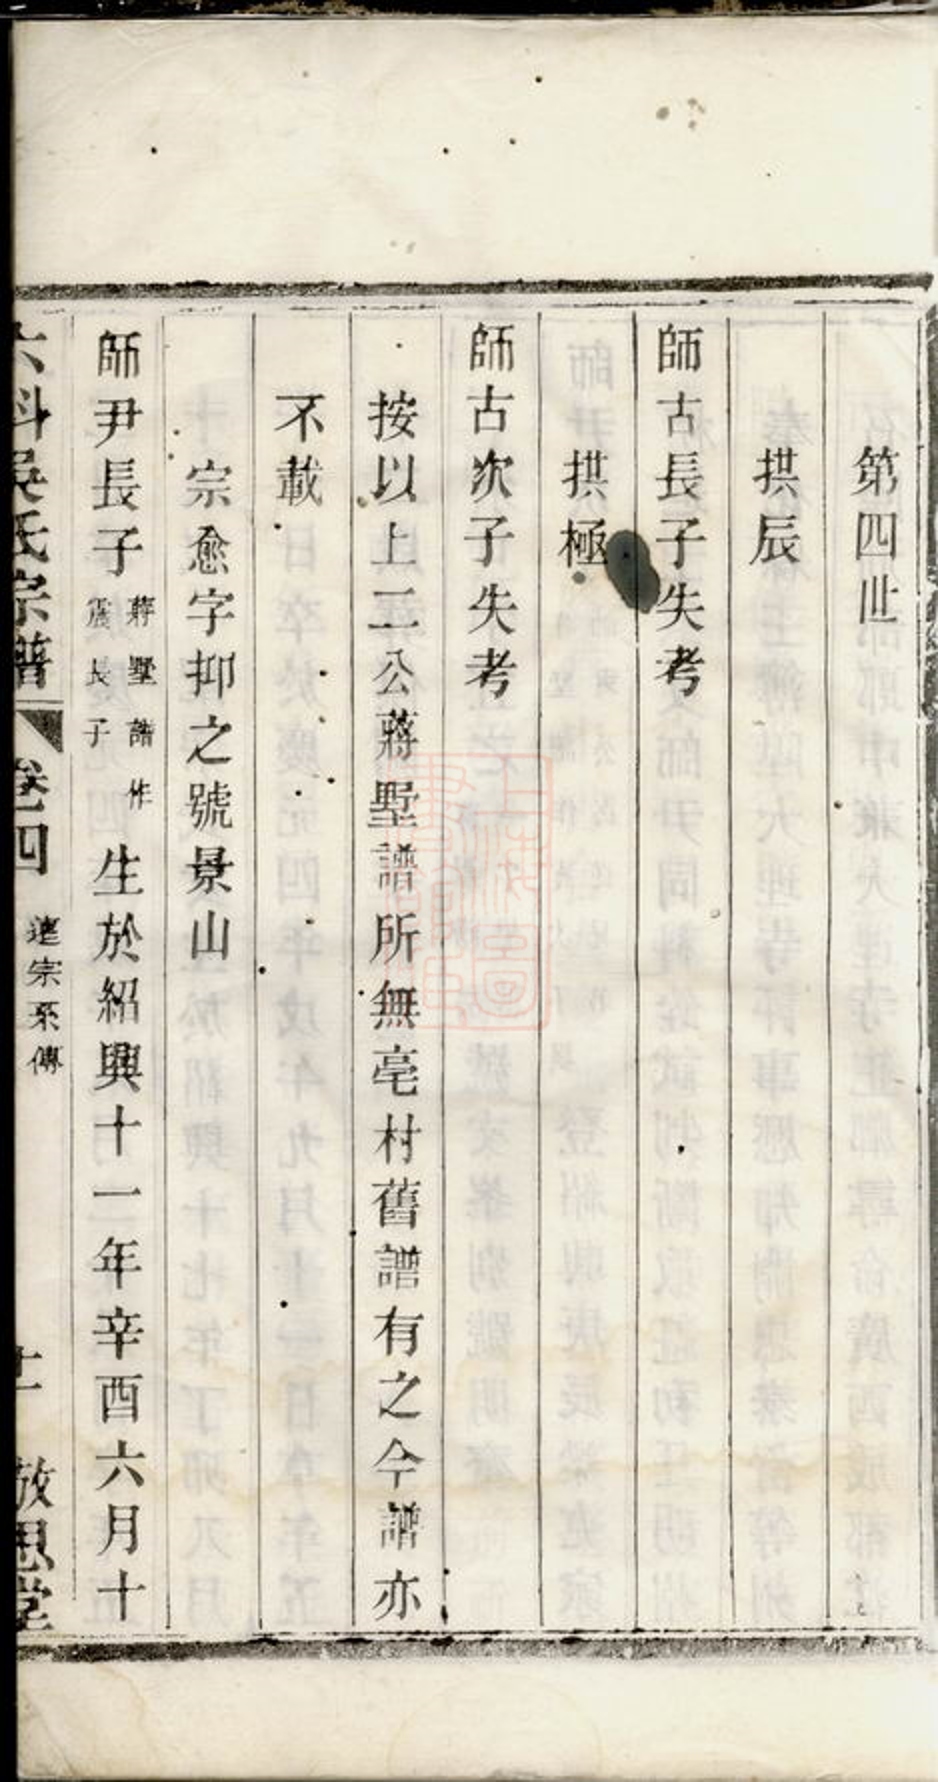 第四世
拱辰
師古長子失考
拱極
師古次子失考
按以上二公蔣墅譜所無亳村舊譜有之今譜亦
不載
宗愈字抑之號景山
師尹長子蔣墅譜作震長子生於紹興十一年辛酉六月十
六科吳氏宗譜 卷四 遷宗系傳 十一 敬思堂